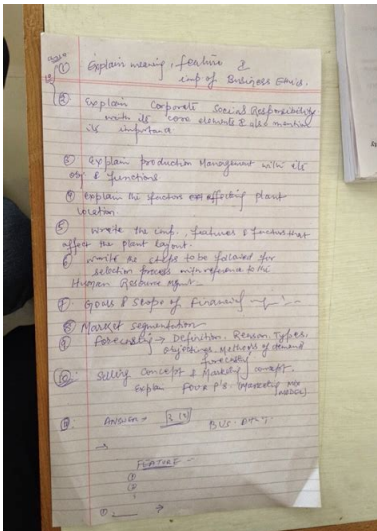 ① Explain meaning, feature &
imp of Business Ethics.
② Explain Corporate Social Responsibility
with its core elements & also mention
its importance
③ explain production Management with its
obj & functions
④ explain the factors affecting plant
location.
⑤ write the imp., features & factors that
affect the plant layout.
⑥ write the steps to be followed for
selection process with reference to the
Human Resource Mgmt
⑦ Goals & Scope of Financing
⑧ Market segmentation
⑨ Forecasting → Definition, Reason, Types,
objectives, Methods of demand
forecasting
⑩ Selling Concept & Marketing concept.
Explain FOUR P's. Marketing mix
MODEL
ANSWER →
FEATURE -
①
②